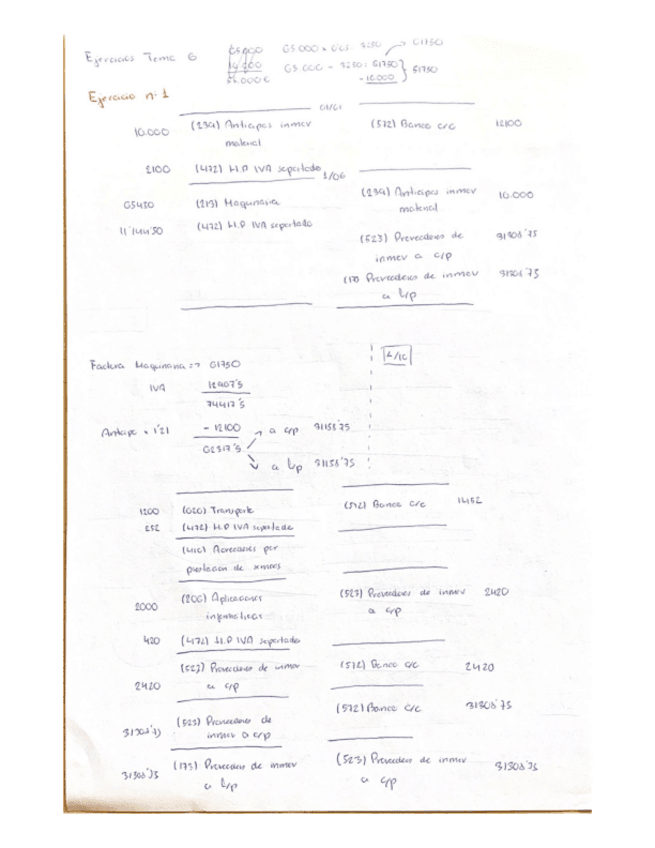 Ejercicios Tema 6
65.000
65.000 x 0'05 = 3250
61750
65.000 - 3250 = 61750
- 10.000
51750
55.000 €
Ejercicio nº 1
01/01
10.000 (239) Anticipos inmov material
(572) Banco c/c 12100
2100 (472) H.P IVA soportado
1/06
(213) Maquinaria
(239) Anticipos inmov material 10.000
(472) H.P IVA soportado
(523) Proveedores de inmov a c/p 31308'75
Proveedores de inmov a l/p 31308'75
Factura Maquinaria => 61750
IVA
74417'5
1/10
Anticipo x 1'21 - 12100
a c/p 31158'75
a l/p 31158'75
1200 Transporte
(572) Banco c/c 1452
252 (472) H.P IVA soportado
(410) Acreedores por prestación de
2000 (206) Aplicaciones informáticas
(523) Proveedores de inmov a c/p 2420
420 (472) H.P IVA soportado
2420 (523) Proveedores de inmov a c/p
(572) Banco c/c 2420
(523) Proveedores de inmov a c/p
(572) Banco c/c 31308'75
(173) Proveedores de inmov a l/p
(523) Proveedores de inmov a c/p 31308'75